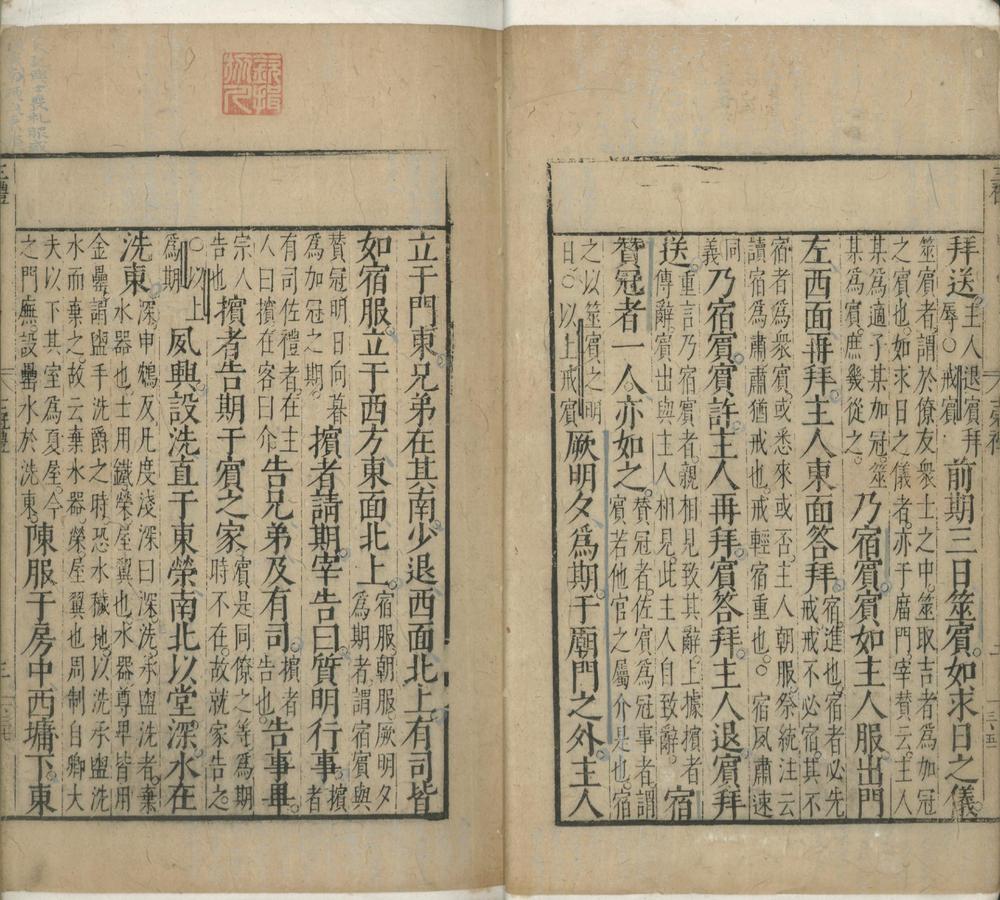 拜送主人退賓拜辱○戒賓前期三日筮賓如求日之儀
筮賓者謂於僚友衆士之中筮取吉者為加冠
之賓也如求日之儀者亦于廟門宰贊云主人
某爲適子某加冠筮某爲賓庶幾從之乃宿賓賓如主人服出門
左西面再拜主人東面答拜宿進也宿者必先戒戒不必宿其不
宿者爲衆賓或悉來或否主人朝服祭統注云
讀宿爲肅肅猶戒也戒輕宿重也○宿夙肅速
同義乃宿賓賓許主人再拜賓答拜主人退賓拜
送重言乃宿賓者親相見致其辭上據擯者傳辭賓出與主人相見此主人自致辭宿
贊冠者一人亦如之贊冠者佐賓爲冠事者謂賓若他官之屬介是也宿
之以筮賓之明日○以上戒賓厥明夕爲期于廟門之外主人
立于門東兄弟在其南少退西面北上有司皆
如宿服立于西方東面北上宿服朝服厥明夕爲期者謂宿賓與
贊冠明日向暮爲加冠之期擯者請期宰告曰質明行事擯者
有司佐禮者在主人曰擯在客曰介告兄弟及有司擯者告也告事畢
宗人告也擯者告期于賓之家賓是同僚之等爲期時不在故就家告之
○以上爲期夙興設洗直于東榮南北以堂深水在
洗東深申鴆反凡度淺深曰深洗承盥洗者棄水器也士用鐵榮屋翼也水器尊卑皆用
金罍謂盥手洗爵之時恐水穢地以洗承盥洗
水而棄之故云棄水器榮屋翼也周制自卿大
夫以下其室爲夏屋今之門廡設罍水於洗東陳服于房中西墉下東